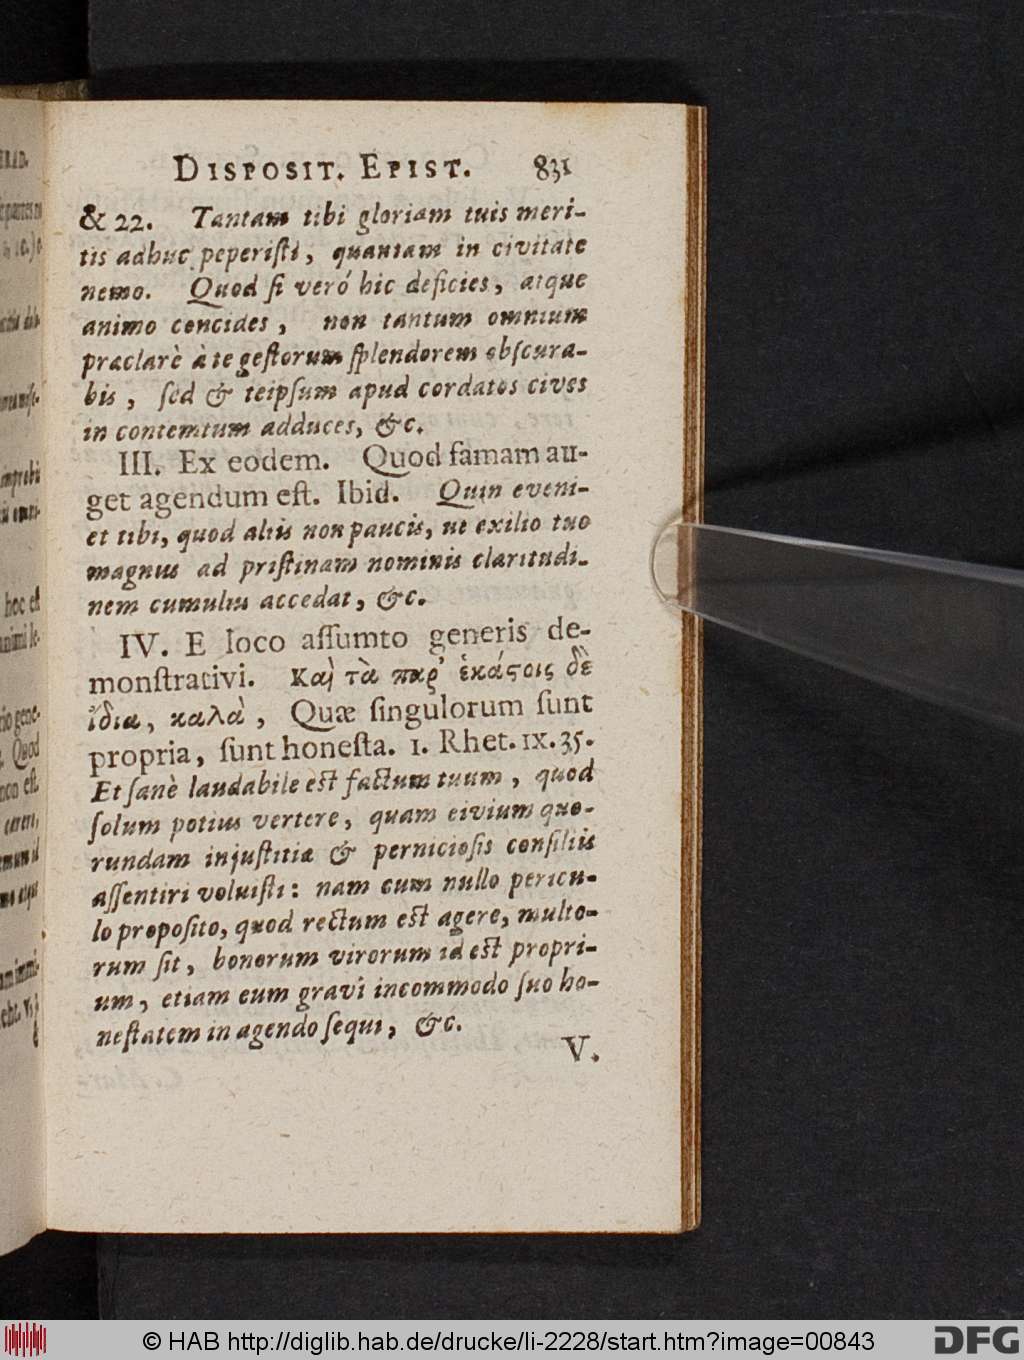 DISPOSIT. EPIST. 831
& 22. Tantam tibi gloriam tuis meri-
tis adhuc peperisti, quantam in civitate
nemo. Quod si veró hic deficies, atque
animo concides, non tantum omnium
praclarè à te gestorum splendorem obscura-
bis, sed & teipsum apud cordatos cives
in contemtum adduces, &c.
III. Ex eodem. Quod famam au-
get agendum est. Ibid. Quin eveni-
et tibi, quod aliis non paucis, ut exilio tuo
magnus ad pristinam nominis claritudi-
nem cumulus accedat, &c.
IV. E loco assumto generis de-
monstrativi. Καὶ τὰ παρ' ἑκάστοις δὲ
ἴδια, καλὰ, Quæ singulorum sunt
propria, sunt honesta. 1. Rhet. IX. 35.
Et sanè laudabile est factum tuum, quod
solum potius vertere, quam eivium quo-
rundam injustitiæ & perniciosis consiliis
assentiri voluisti: nam cum nullo pericu-
lo proposito, quod rectum est agere, multo-
rum sit, bonorum virorum id est propri-
um, etiam cum gravi incommodo suo ho-
nestatem in agendo sequi, &c.
V.
© HAB http://diglib.hab.de/drucke/li-2228/start.htm?image=00843
DFG